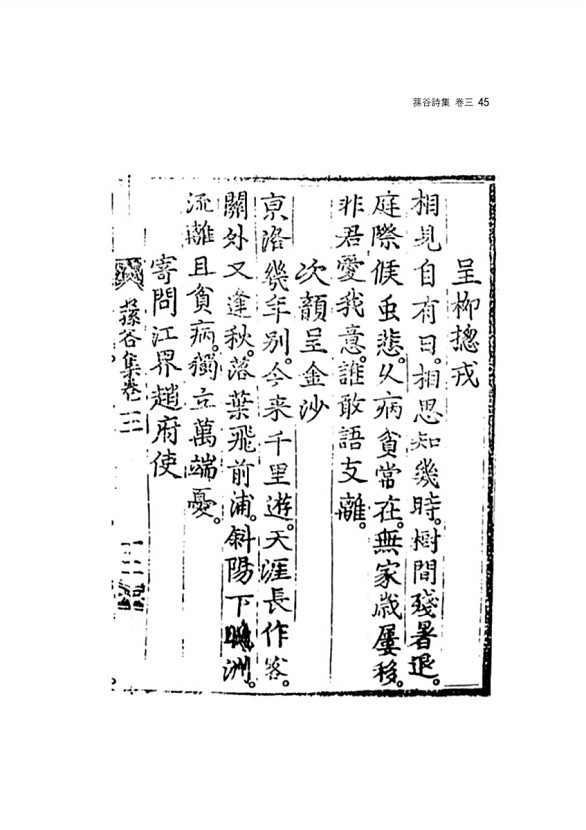 蓀谷詩集 卷三 45
呈柳摠戎
相見自有日。相思知幾時。樹間殘暑退。
庭際候虫悲。久病貧常在。無家歲屢移。
非君愛我意。誰敢語支離。
次韻呈金沙
京洛幾年別。今来千里遊。天涯長作客。
關外又逢秋。落葉飛前浦。斜陽下晩洲。
流離且貧病。獨立萬端憂。
寄問江界趙府使
蓀谷集卷三
十二